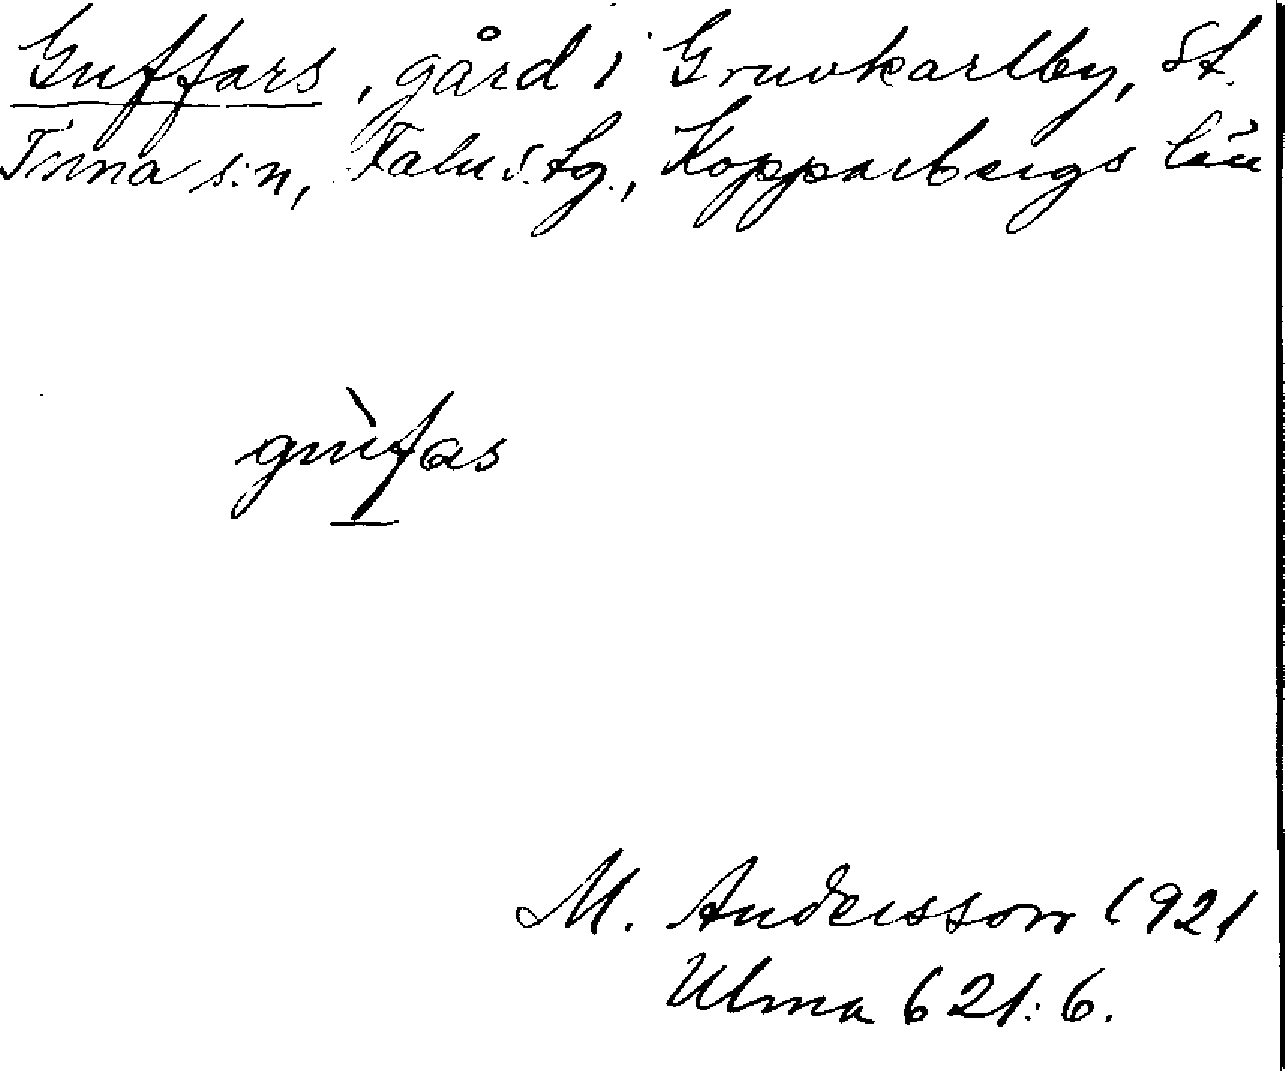 Guffars, gård i Gruvkarlby, St.
Tuna s:n, Falu s. tg., Kopparbergs län
gùfas
M. Andersson 1921
Ulma 621:6.